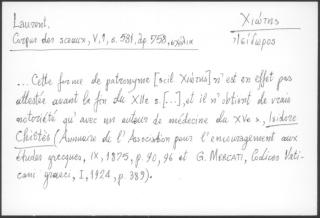 Laurent,
Corpus des sceaux, V, 1, s. 581, άρ. 758, σχόλια
Χιώτης
Ἰσίδωρος
... Cette forme de patronyme [scil. Χιώτης] n'est en effet pas
attestée avant la fin du XIIe s. [...], et il n'obtient de vraie
notoriété qu'avec un auteur de médecine du XVe s., Isidore
Chiotès (Annuaire de l'Association pour l'encouragement aux
études grecques, IX, 1875, p. 90, 96 et G. MERCATI, Codices Vati-
cani graeci, I, 1924, p. 389).